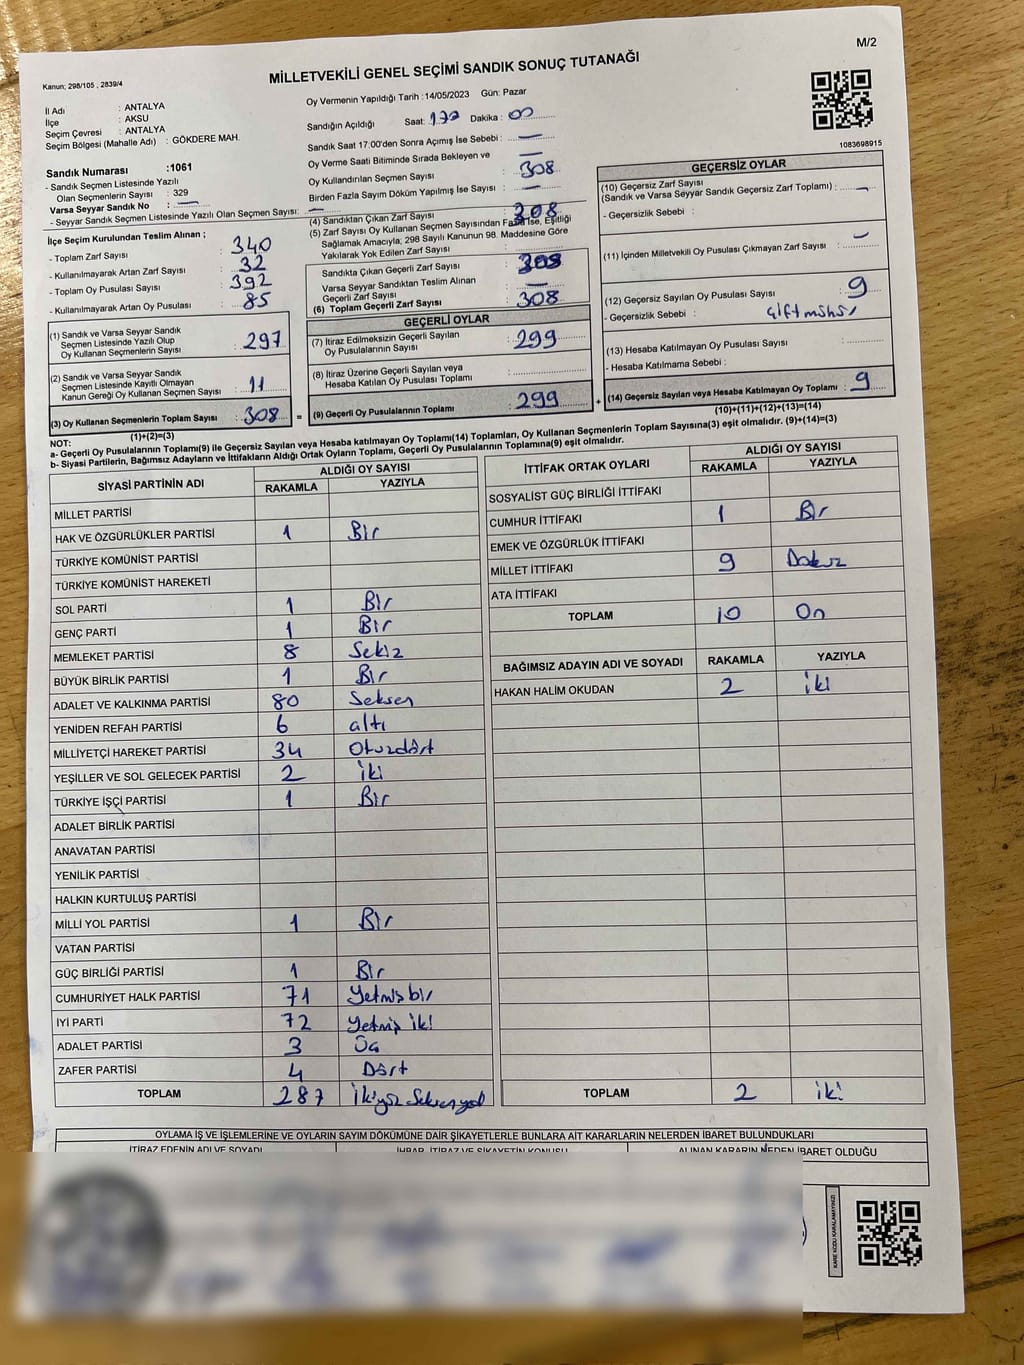 M/2
Kanun; 298/105 , 2839/4
MİLLETVEKİLİ GENEL SEÇİMİ SANDIK SONUÇ TUTANAĞI
İl Adı : ANTALYA
İlçe : AKSU
Seçim Çevresi : ANTALYA
Seçim Bölgesi (Mahalle Adı) : GÖKDERE MAH.
Sandık Numarası :1061
- Sandık Seçmen Listesinde Yazılı
Olan Seçmenlerin Sayısı : 329
Varsa Seyyar Sandık No : —
- Seyyar Sandık Seçmen Listesinde Yazılı Olan Seçmen Sayısı: —
İlçe Seçim Kurulundan Teslim Alınan ;
- Toplam Zarf Sayısı : 340
- Kullanılmayarak Artan Zarf Sayısı : 32
- Toplam Oy Pusulası Sayısı : 392
- Kullanılmayarak Artan Oy Pusulası : 85
(1) Sandık ve Varsa Seyyar Sandık
Seçmen Listesinde Yazılı Olup
Oy Kullanan Seçmenlerin Sayısı : 297
(2) Sandık ve Varsa Seyyar Sandık
Seçmen Listesinde Kayıtlı Olmayan
Kanun Gereği Oy Kullanan Seçmen Sayısı : 11
(3) Oy Kullanan Seçmenlerin Toplam Sayısı : 308 =
(1)+(2)=(3)
Oy Vermenin Yapıldığı Tarih : 14/05/2023 Gün: Pazar
Sandığın Açıldığı Saat: Dakika : 00
Sandık Saat 17:00'den Sonra Açımış İse Sebebi : —
Oy Verme Saati Bitiminde Sırada Bekleyen ve —
Oy Kullandırılan Seçmen Sayısı : 308
Birden Fazla Sayım Döküm Yapılmış İse Sayısı : —
(4) Sandıktan Çıkan Zarf Sayısı : 308
(5) Zarf Sayısı Oy Kullanan Seçmen Sayısından Fazla İse, Eşitliği
Sağlamak Amacıyla; 298 Sayılı Kanunun 98. Maddesine Göre
Yakılarak Yok Edilen Zarf Sayısı :
Sandıkta Çıkan Geçerli Zarf Sayısı : 308
Varsa Seyyar Sandıktan Teslim Alınan
Geçerli Zarf Sayısı : —
(6) Toplam Geçerli Zarf Sayısı : 308
GEÇERLİ OYLAR
(7) İtiraz Edilmeksizin Geçerli Sayılan
Oy Pusulalarının Sayısı : 299
(8) İtiraz Üzerine Geçerli Sayılan veya
Hesaba Katılan Oy Pusulası Toplamı :
(9) Geçerli Oy Pusulalarının Toplamı : 299 +
1083698915
GEÇERSİZ OYLAR
(10) Geçersiz Zarf Sayısı
(Sandık ve Varsa Seyyar Sandık Geçersiz Zarf Toplamı) : —
- Geçersizlik Sebebi :
(11) İçinden Milletvekili Oy Pusulası Çıkmayan Zarf Sayısı : —
(12) Geçersiz Sayılan Oy Pusulası Sayısı : 9
- Geçersizlik Sebebi : Çift mühür
(13) Hesaba Katılmayan Oy Pusulası Sayısı :
- Hesaba Katılmama Sebebi :
(14) Geçersiz Sayılan veya Hesaba Katılmayan Oy Toplamı : 9
(10)+(11)+(12)+(13)=(14)
NOT:
a- Geçerli Oy Pusulalarının Toplamı(9) ile Geçersiz Sayılan veya Hesaba katılmayan Oy Toplamı(14) Toplamları, Oy Kullanan Seçmenlerin Toplam Sayısına(3) eşit olmalıdır. (9)+(14)=(3)
b- Siyasi Partilerin, Bağımsız Adayların ve İttifakların Aldığı Ortak Oyların Toplamı, Geçerli Oy Pusulalarının Toplamına(9) eşit olmalıdır.
SİYASİ PARTİNİN ADI ALDIĞI OY SAYISI
RAKAMLA YAZIYLA
MİLLET PARTİSİ
HAK VE ÖZGÜRLÜKLER PARTİSİ 1 Bir
TÜRKİYE KOMÜNİST PARTİSİ
TÜRKİYE KOMÜNİST HAREKETİ
SOL PARTİ 1 Bir
GENÇ PARTİ 1 Bir
MEMLEKET PARTİSİ 8 Sekiz
BÜYÜK BİRLİK PARTİSİ 1 Bir
ADALET VE KALKINMA PARTİSİ 80 Seksen
YENİDEN REFAH PARTİSİ 6 altı
MİLLİYETÇİ HAREKET PARTİSİ 34 Otuzdört
YEŞİLLER VE SOL GELECEK PARTİSİ 2 İki
TÜRKİYE İŞÇİ PARTİSİ 1 Bir
ADALET BİRLİK PARTİSİ
ANAVATAN PARTİSİ
YENİLİK PARTİSİ
HALKIN KURTULUŞ PARTİSİ
MİLLİ YOL PARTİSİ 1 Bir
VATAN PARTİSİ
GÜÇ BİRLİĞİ PARTİSİ 1 Bir
CUMHURİYET HALK PARTİSİ 71 Yetmiş bir
İYİ PARTİ 72 Yetmiş iki
ADALET PARTİSİ 3 Üç
ZAFER PARTİSİ 4 Dört
TOPLAM 287 İkiyüz Seksenyedi
İTTİFAK ORTAK OYLARI ALDIĞI OY SAYISI
RAKAMLA YAZIYLA
SOSYALİST GÜÇ BİRLİĞİ İTTİFAKI
CUMHUR İTTİFAKI 1 Bir
EMEK VE ÖZGÜRLÜK İTTİFAKI
MİLLET İTTİFAKI 9 Dokuz
ATA İTTİFAKI
TOPLAM 10 On
BAĞIMSIZ ADAYIN ADI VE SOYADI RAKAMLA YAZIYLA
HAKAN HALİM OKUDAN 2 iki
TOPLAM 2 iki
OYLAMA İŞ VE İŞLEMLERİNE VE OYLARIN SAYIM DÖKÜMÜNE DAİR ŞİKAYETLERLE BUNLARA AİT KARARLARIN NELERDEN İBARET BULUNDUKLARI
İTİRAZ EDENİN ADI VE SOYADI İHBAR, İTİRAZ VE ŞİKAYETİN KONUSU ALINAN KARARIN NEDEN İBARET OLDUĞU
KARE KODU KARALAMAYINIZ!